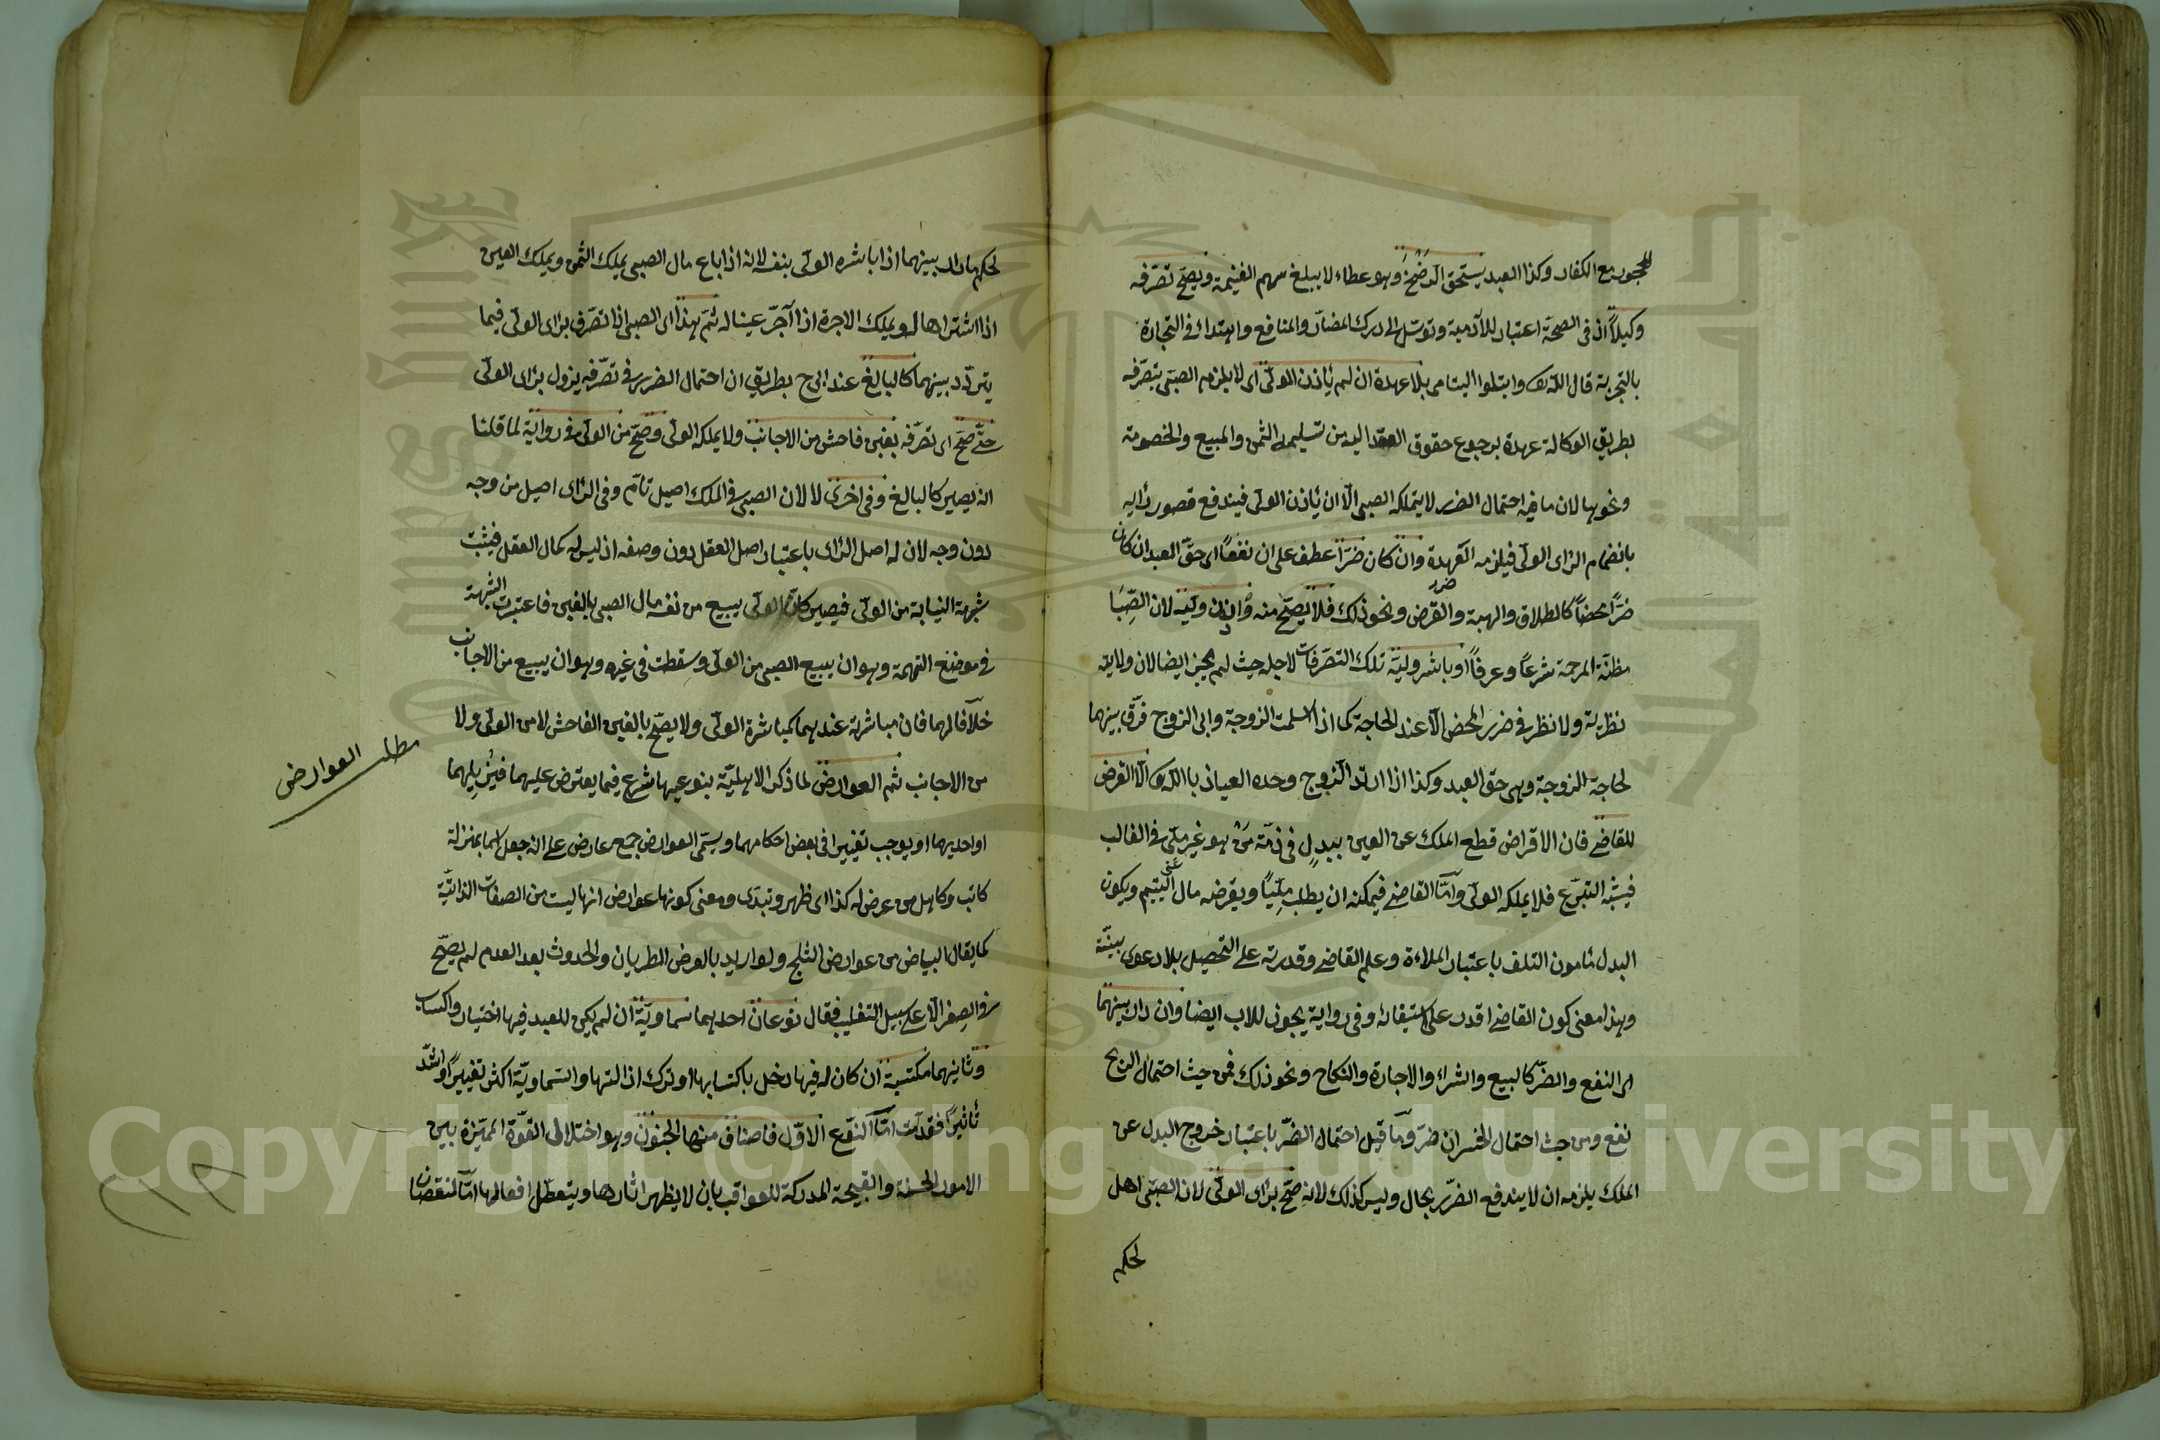 للمحجور مع الكفار وكذا العبد يستحق الرضخ وهو عطاء لا يبلغ سهم الغنيمة ويصح تصرفه
وكيلا اذ في الصحة اعتبار للآدمية وتوسل الى درك المضار والمنافع واهتداء في التجارة
بالتجربة قال الله تعالى وابتلوا اليتامى بلا عهدة ان لم يأذن الولي اى لا يلزم الصبي بتصرفه
بطريق الوكالة عهدة برجوع حقوق العقد اليه من تسليم الثمن والمبيع والخصومة
ونحوها لان ما فيه احتمال الضرر لا يتملكه الصبي الا ان يأذن الولي فيندفع قصور رأيه
بانضمام الراى الولي فيلزمه العهدة وان كان ضرا عطف على ان نفعا اى حق العبد ان كان
ضرا محضا كالطلاق والهبة والقرض ونحو ذلك فلا يصح منه وان اذن وليه لان الصبا
مظنة المرحمة شرعا وعرفا او باشر وليه تلك التصرفات لاجله حيث لم يجز ايضا لان ولايته
نظرية ولا نظر في ضرر المحض الا عند الحاجة كما اذا اسلمت الزوجة وابى الزوج فرق بينهما
لحاجة الزوجة وهى حق العبد وكذا اذا ارتد الزوج وحده العياذ بالله تعالى الا القرض
للقاضي فان الاقراض قطع الملك عن العين ببدل في ذمة من هو غير ملى في الغالب
فيشبه التبرع فلا يملكه الولي واما القاضي فيمكنه ان يطلب مليا ويقرضه مال اليتيم ويكون
البدل مأمون التلف باعتبار الملاءة وعلم القاضي وقدرته على التحصيل بلا دعوى بينة
وهذا معنى كون القاضي اقدر على استيفائه وفي رواية يجوز للاب ايضا وان دار بينهما
اى النفع والضر كالبيع والشراء والاجارة والنكاح ونحو ذلك فمن حيث احتمال الربح
نفع ومن حيث احتمال الخسران ضر وما قيل احتمال الضر باعتبار خروج البدل عن
الملك يلزمه ان لا يندفع الضرر بحال وليس كذلك لانه صح براى الولي لان الصبي اهل
لحكم
لحكم ما دار بينهما اذا باشره الولي بنفسه لانه اذا باع مال الصبي يملك الثمن ويملك العين
اذا اشتراها له ويملك الاجرة اذا آجر عينا له ثم هذا اى الصبي اذا تصرف براى الولي فيما
يتردد بينهما كالبالغ عند ابي ح بطريق ان احتمال الضرر في تصرفه يزول براى الولي
حتى صح اى تصرفه بغبن فاحش من الاجانب ولا يملكه الولي وصح من الولي في رواية لما قلنا
انه يصير كالبالغ وفي اخرى لا لان الصبي في الملك اصيل تام وفي الراى اصيل من وجه
دون وجه لان له اصل الراى باعتبار اصل العقل دون وصفه اذ ليس له كمال العقل فيثبت
شبهة النيابة من الولي فيصير كان الولي يبيع من نفسه مال الصبي بالغبن فاعتبرت الشبهة
في موضع التهمة وهو ان يبيع الصبي من الولي وسقطت في غيره وهو ان يبيع من الاجانب
خلافا لهما فان مباشرته عندهما كمباشرة الولي ولا يصح بالغبن الفاحش لا من الولي ولا
من الاجانب ثم العوارض لما ذكر الاهلية بنوعيها شرع فيما يعترض عليهما فيزيلهما
او احديهما او يوجب تغييرا في بعض احكامهما ويسمى العوارض جمع عارض على انه جعل اسما بمنزلة
كاتب وكاهل من عرض له كذا اى ظهر وتبدى ومعنى كونها عوارض انها ليست من الصفات الذاتية
كما يقال البياض من عوارض الثلج ولو اريد بالعرض الطريان والحدوث بعد العدم لم يصح
في الصغر الا على سبيل التغليب فقال نوعان احدهما سماوية ان لم يكن للعبد فيها اختيار واكتساب
وثانيهما مكتسبة ان كان له فيها دخل باكتسابها او ترك ازالتها والسماوية اكثر تغييرا واشد
تأثيرا فقدمت اما النوع الاول فاصناف منها الجنون وهو اختلال القوة المميزة بين
الامور الحسنة والقبيحة المدركة للعواقب بان لا يظهر اثارها ويتعطل افعالها اما لنقصان
مطلب العوارض
Copyright © King Saud University